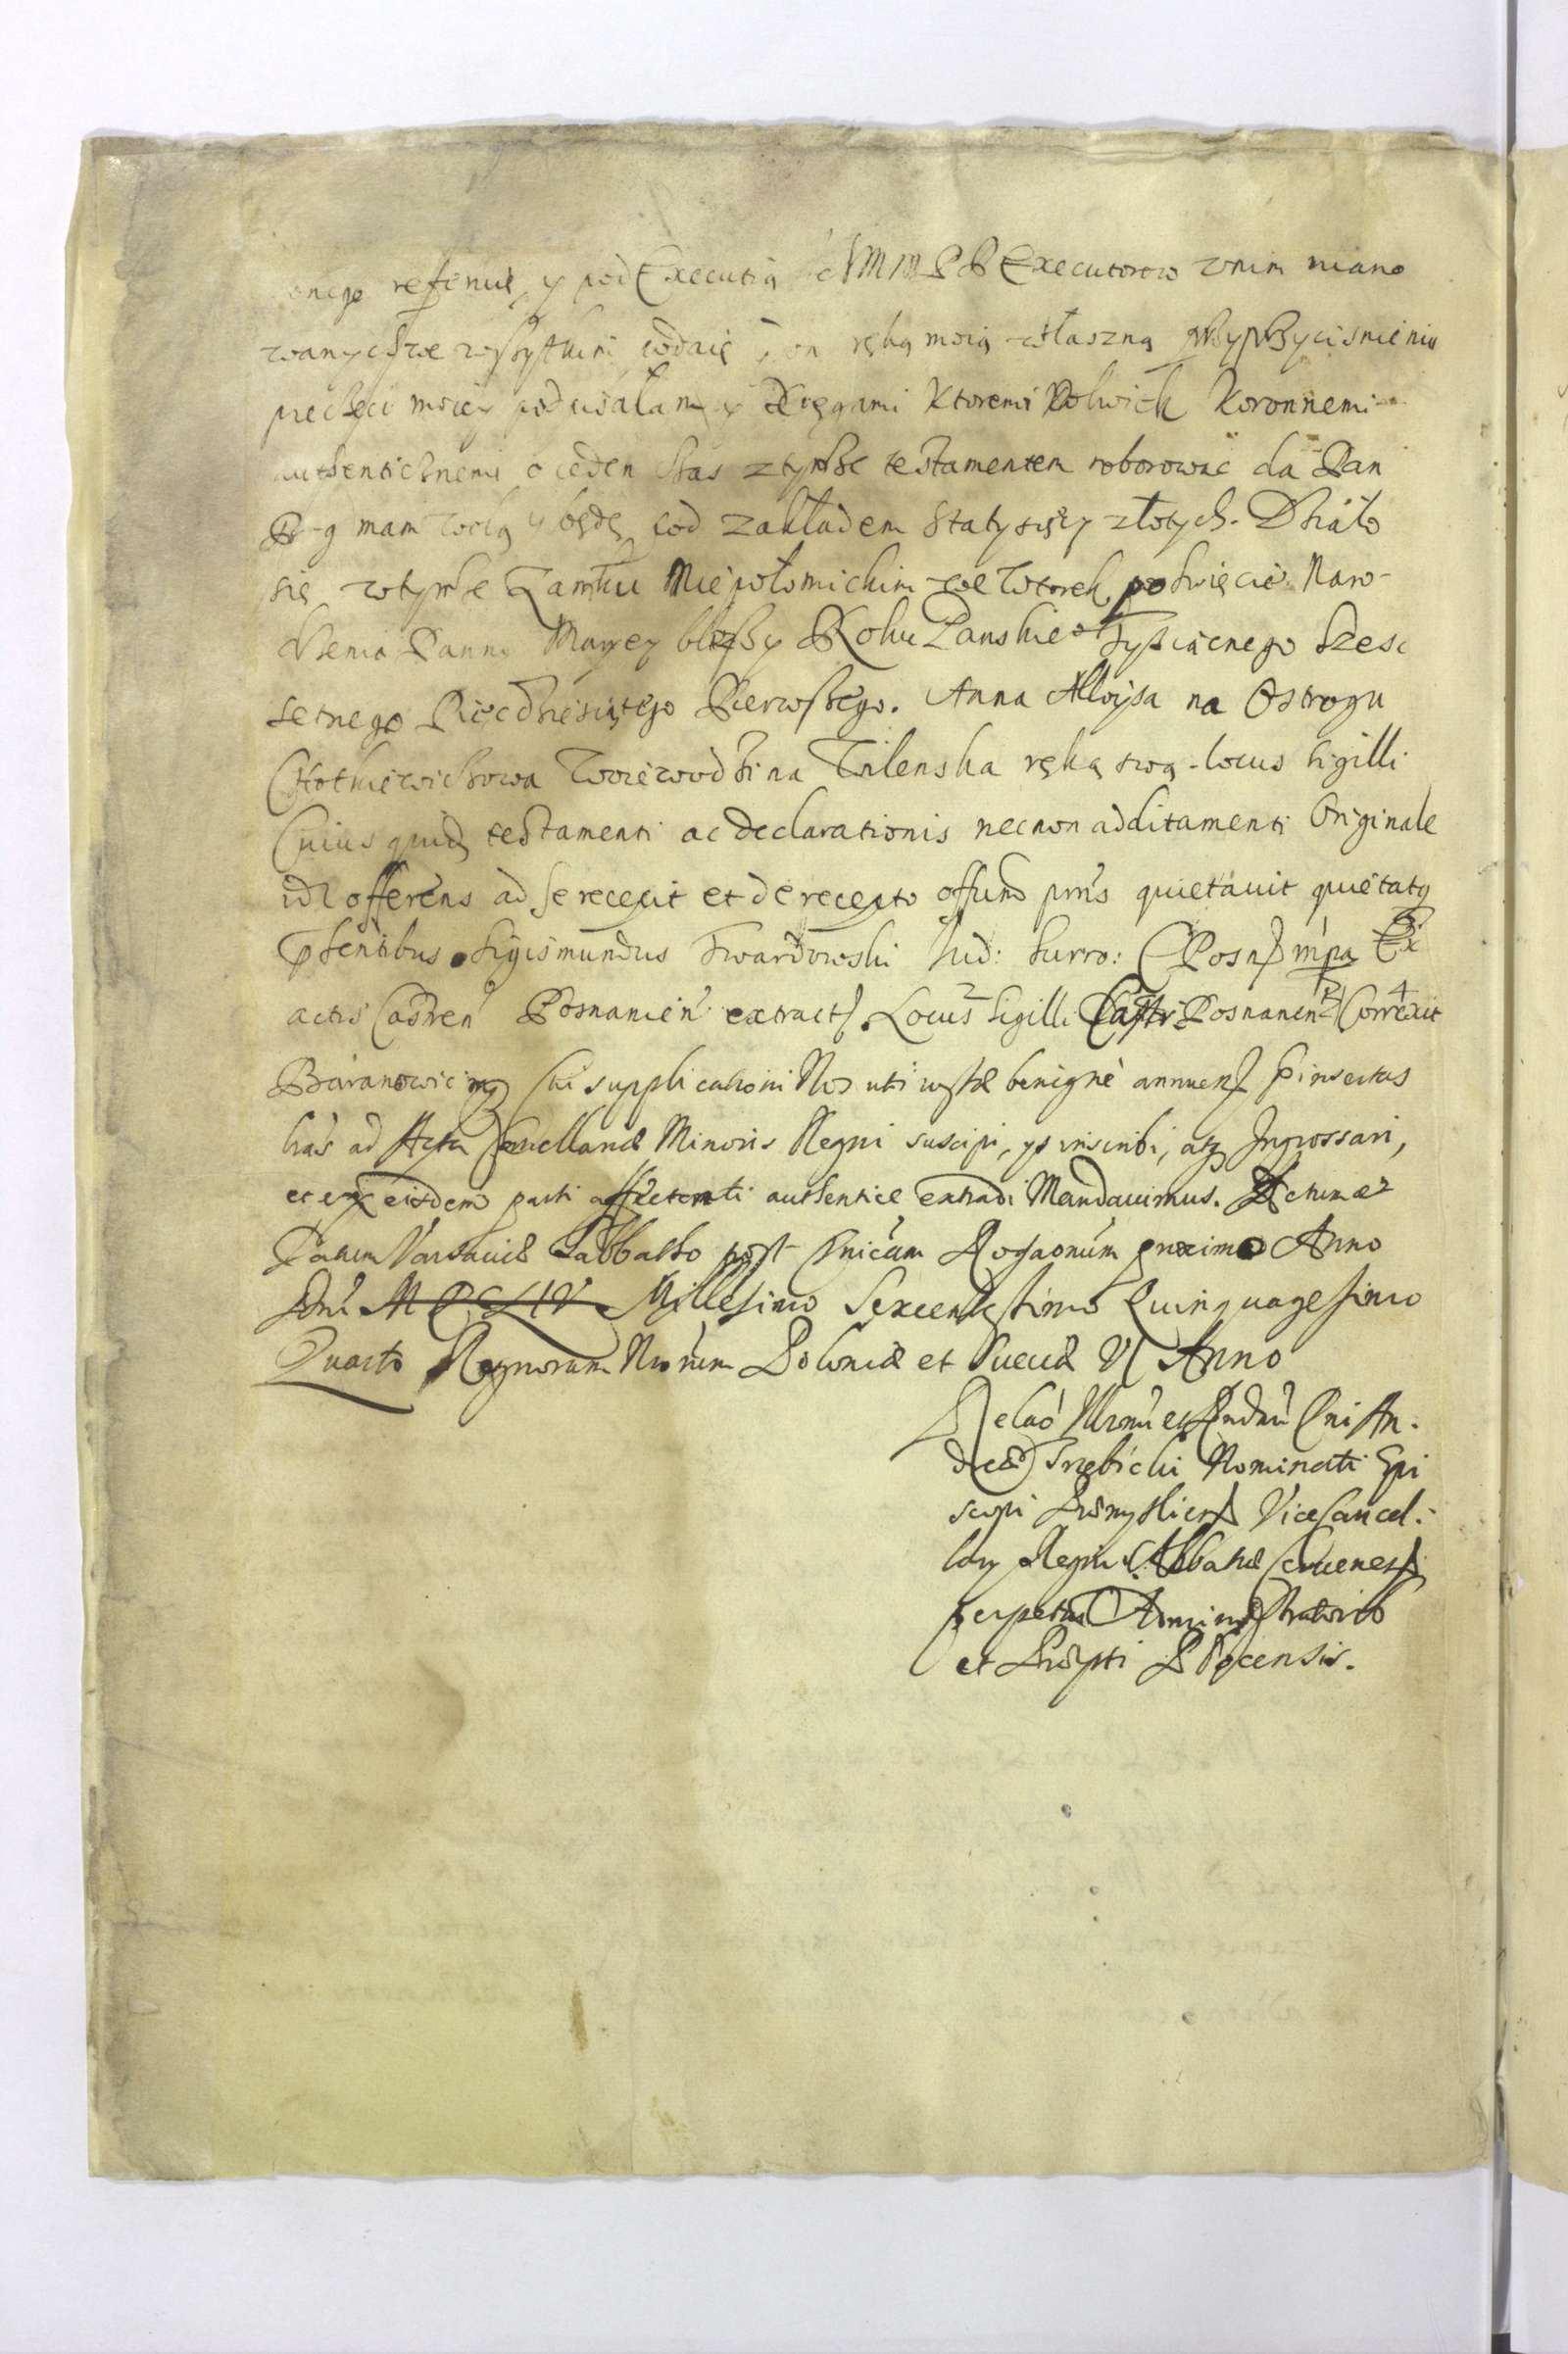 onego refenuie y pod Executią IchMM PP Executorow w nim miano
wanych we wszytkim poddaię ręką moią własną przy przyciśnieniu
pieczęci moiey podpisałam y Xięgami Ktoremi kolwiek Koronnemi
authenticznemi o ieden czas z tymże testamentem roborować da Pan
B-g mam wolą y będę pod zakładem sta tysięcy złotych. Działo
się w tymże Zamku Niepołomickim we Wtorek po Święcie Naro-
dzenia Panny Maryey bliższy Roku Panskie° Tysiącnego Szesc
setnego Pięcdziesiątego Pierwszego. Anna Alloysa na Ostrogu
Chotkiewiczowa Woiewodzina Wilenska ręką swą. locus Sigilli
Cuius quidem testamenti ac declarationis necnon additamenti Originale
idem offerens ad se recepit et de recepto offum prns quietauit quietatq
psentibus Sigismundus Twardowski Jud: Surro: Posn mpa Ex
actis Castren Posnanien extract Locus Sigilli Castr Posnanen Correxit
Baranowic mp Cui supplicationi Nos uti iustæ benignè annuen pinsertas
lras ad Acta Cancellariæ Minoris Regni suscipi, ys inscribi, atq Ingrossari,
et ex eisdem parti affectanti authenticè extradi Mandauimus. Actum et
Datum Varsaviæ Sabbatho post Dnicam Rogaonum proximo Anno
Dni MDCLIV Millesimo Sexcentesimo Quinquagesimo
Quarto Regnorum Nrorum Poloniæ et Sueciæ VI Anno
Relao Illrmi et Rndmi Dni An-
dreæ Trzebicki Nominati Epi
scopi Præmyslien Vicecancel-
lary Regni Abbatiæ Czeruenen
perpetui Administratoris
et Præpti Plocensis.